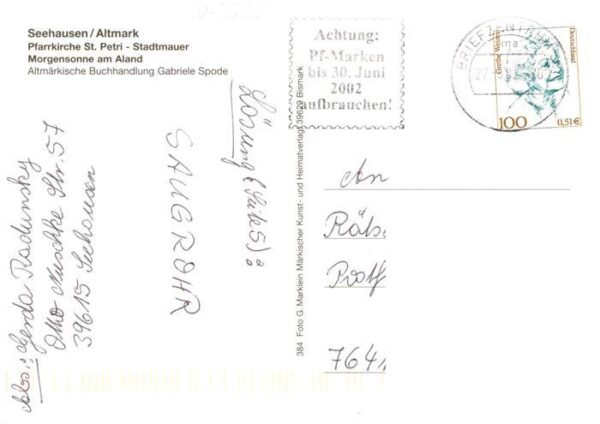 Seehausen/Altmark
Pfarrkirche St. Petri - Stadtmauer
Morgensonne am Aland
Altmärkische Buchhandlung Gabriele Spode
Achtung:
Pf-Marken
bis 30. Juni
2002
aufbrauchen!
BRIEFZENTRUM
Deutschland
100
0,51€
Abs.: Gerda Radunsky
Otto Nuschke Str. 57
39615 Seehausen
Lösung (Seite 5):
SAUGROHR
384 Foto G. Marklein Märkischer Kunst- und Heimatverlag, 39629 Bismark
An
Räts
Postf
7641